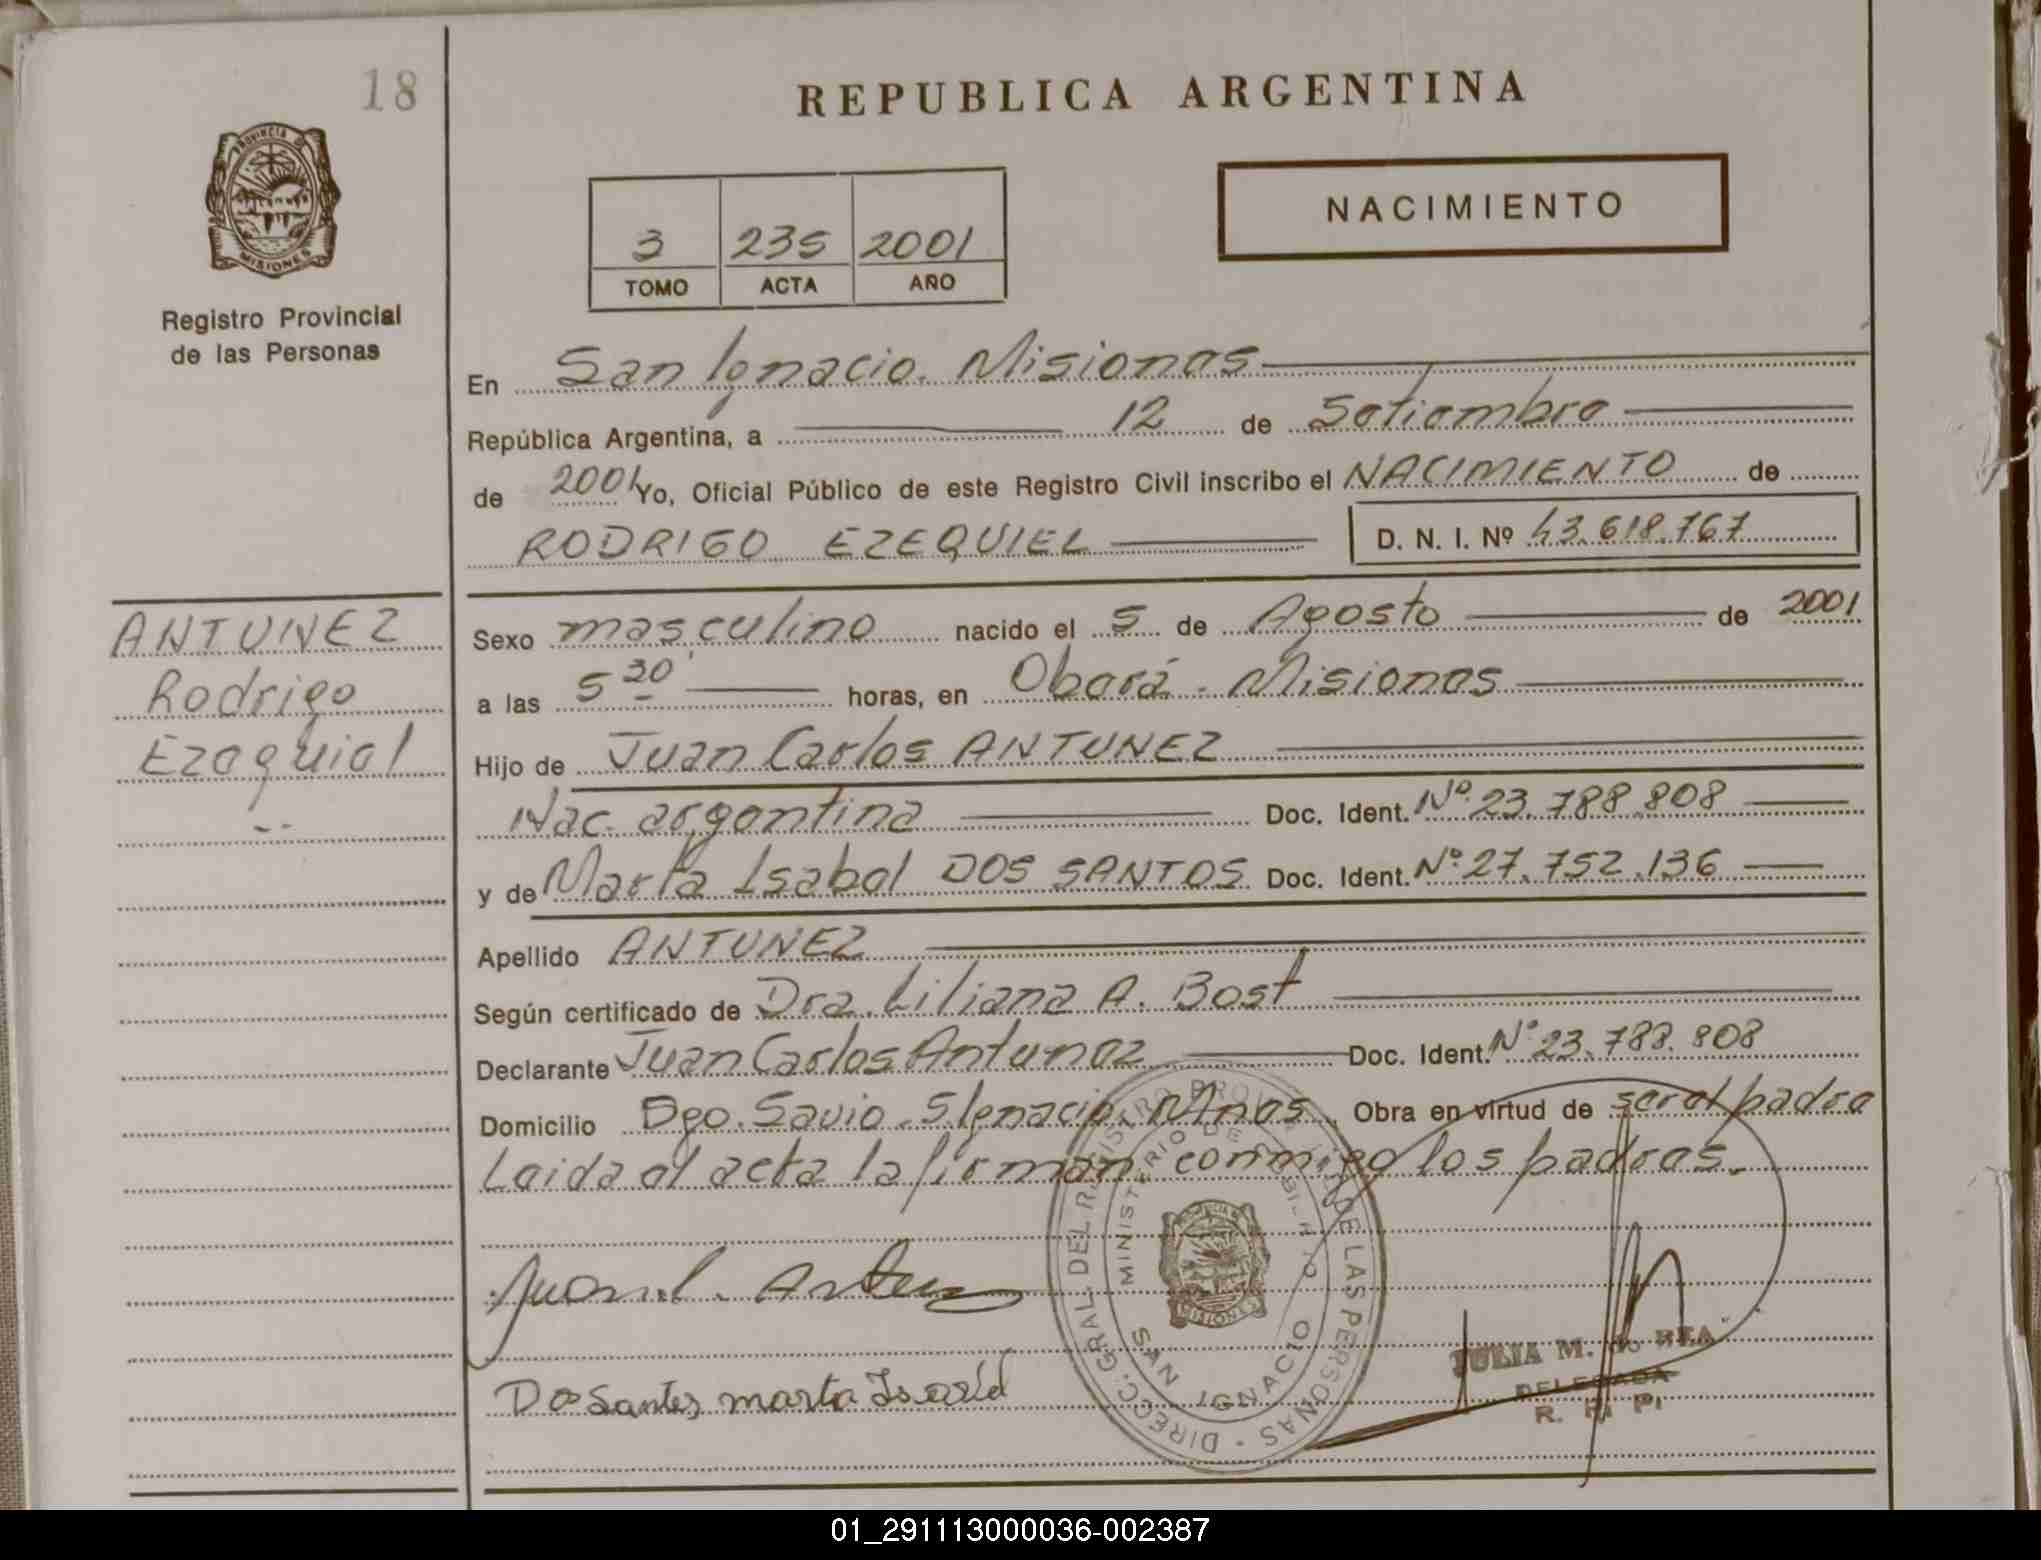 18
REPUBLICA ARGENTINA
PROVINCIA DE
MISIONES
NACIMIENTO
3 235 2001
TOMO ACTA AÑO
Registro Provincial
de las Personas
En San Ignacio. Misiones
República Argentina, a 12 de Setiembre
de 2001 Yo, Oficial Público de este Registro Civil inscribo el NACIMIENTO de
RODRIGO EZEQUIEL D. N. I. Nº 43.618.767
ANTUNEZ
Rodrigo
Ezequiel
Sexo masculino nacido el 5 de Agosto de 2001
a las 5 30 horas, en Oberá - Misiones
Hijo de Juan Carlos ANTUNEZ
Nac. argentina Doc. Ident. Nº 23.788.808
y de Marta Isabel DOS SANTOS Doc. Ident. Nº 27.752.136
Apellido ANTUNEZ
Según certificado de Dra. Liliana A. Best
Declarante Juan Carlos Antunez Doc. Ident. Nº 23.788.808
Domicilio Dgo. Savio - S. Ignacio. Mnes. Obra en virtud de ser el padre
Leida el acta la firman conmigo los padres.
Juan C. Antunez
Dos Santos marta Isabel
DIREC. GRAL DEL REGISTRO PROV. DE LAS PERSONAS
MINISTERIO DE
SAN IGNACIO
MISIONES
JULIA M. de REA
DELEGADA
R. P. P.
01_291113000036-002387